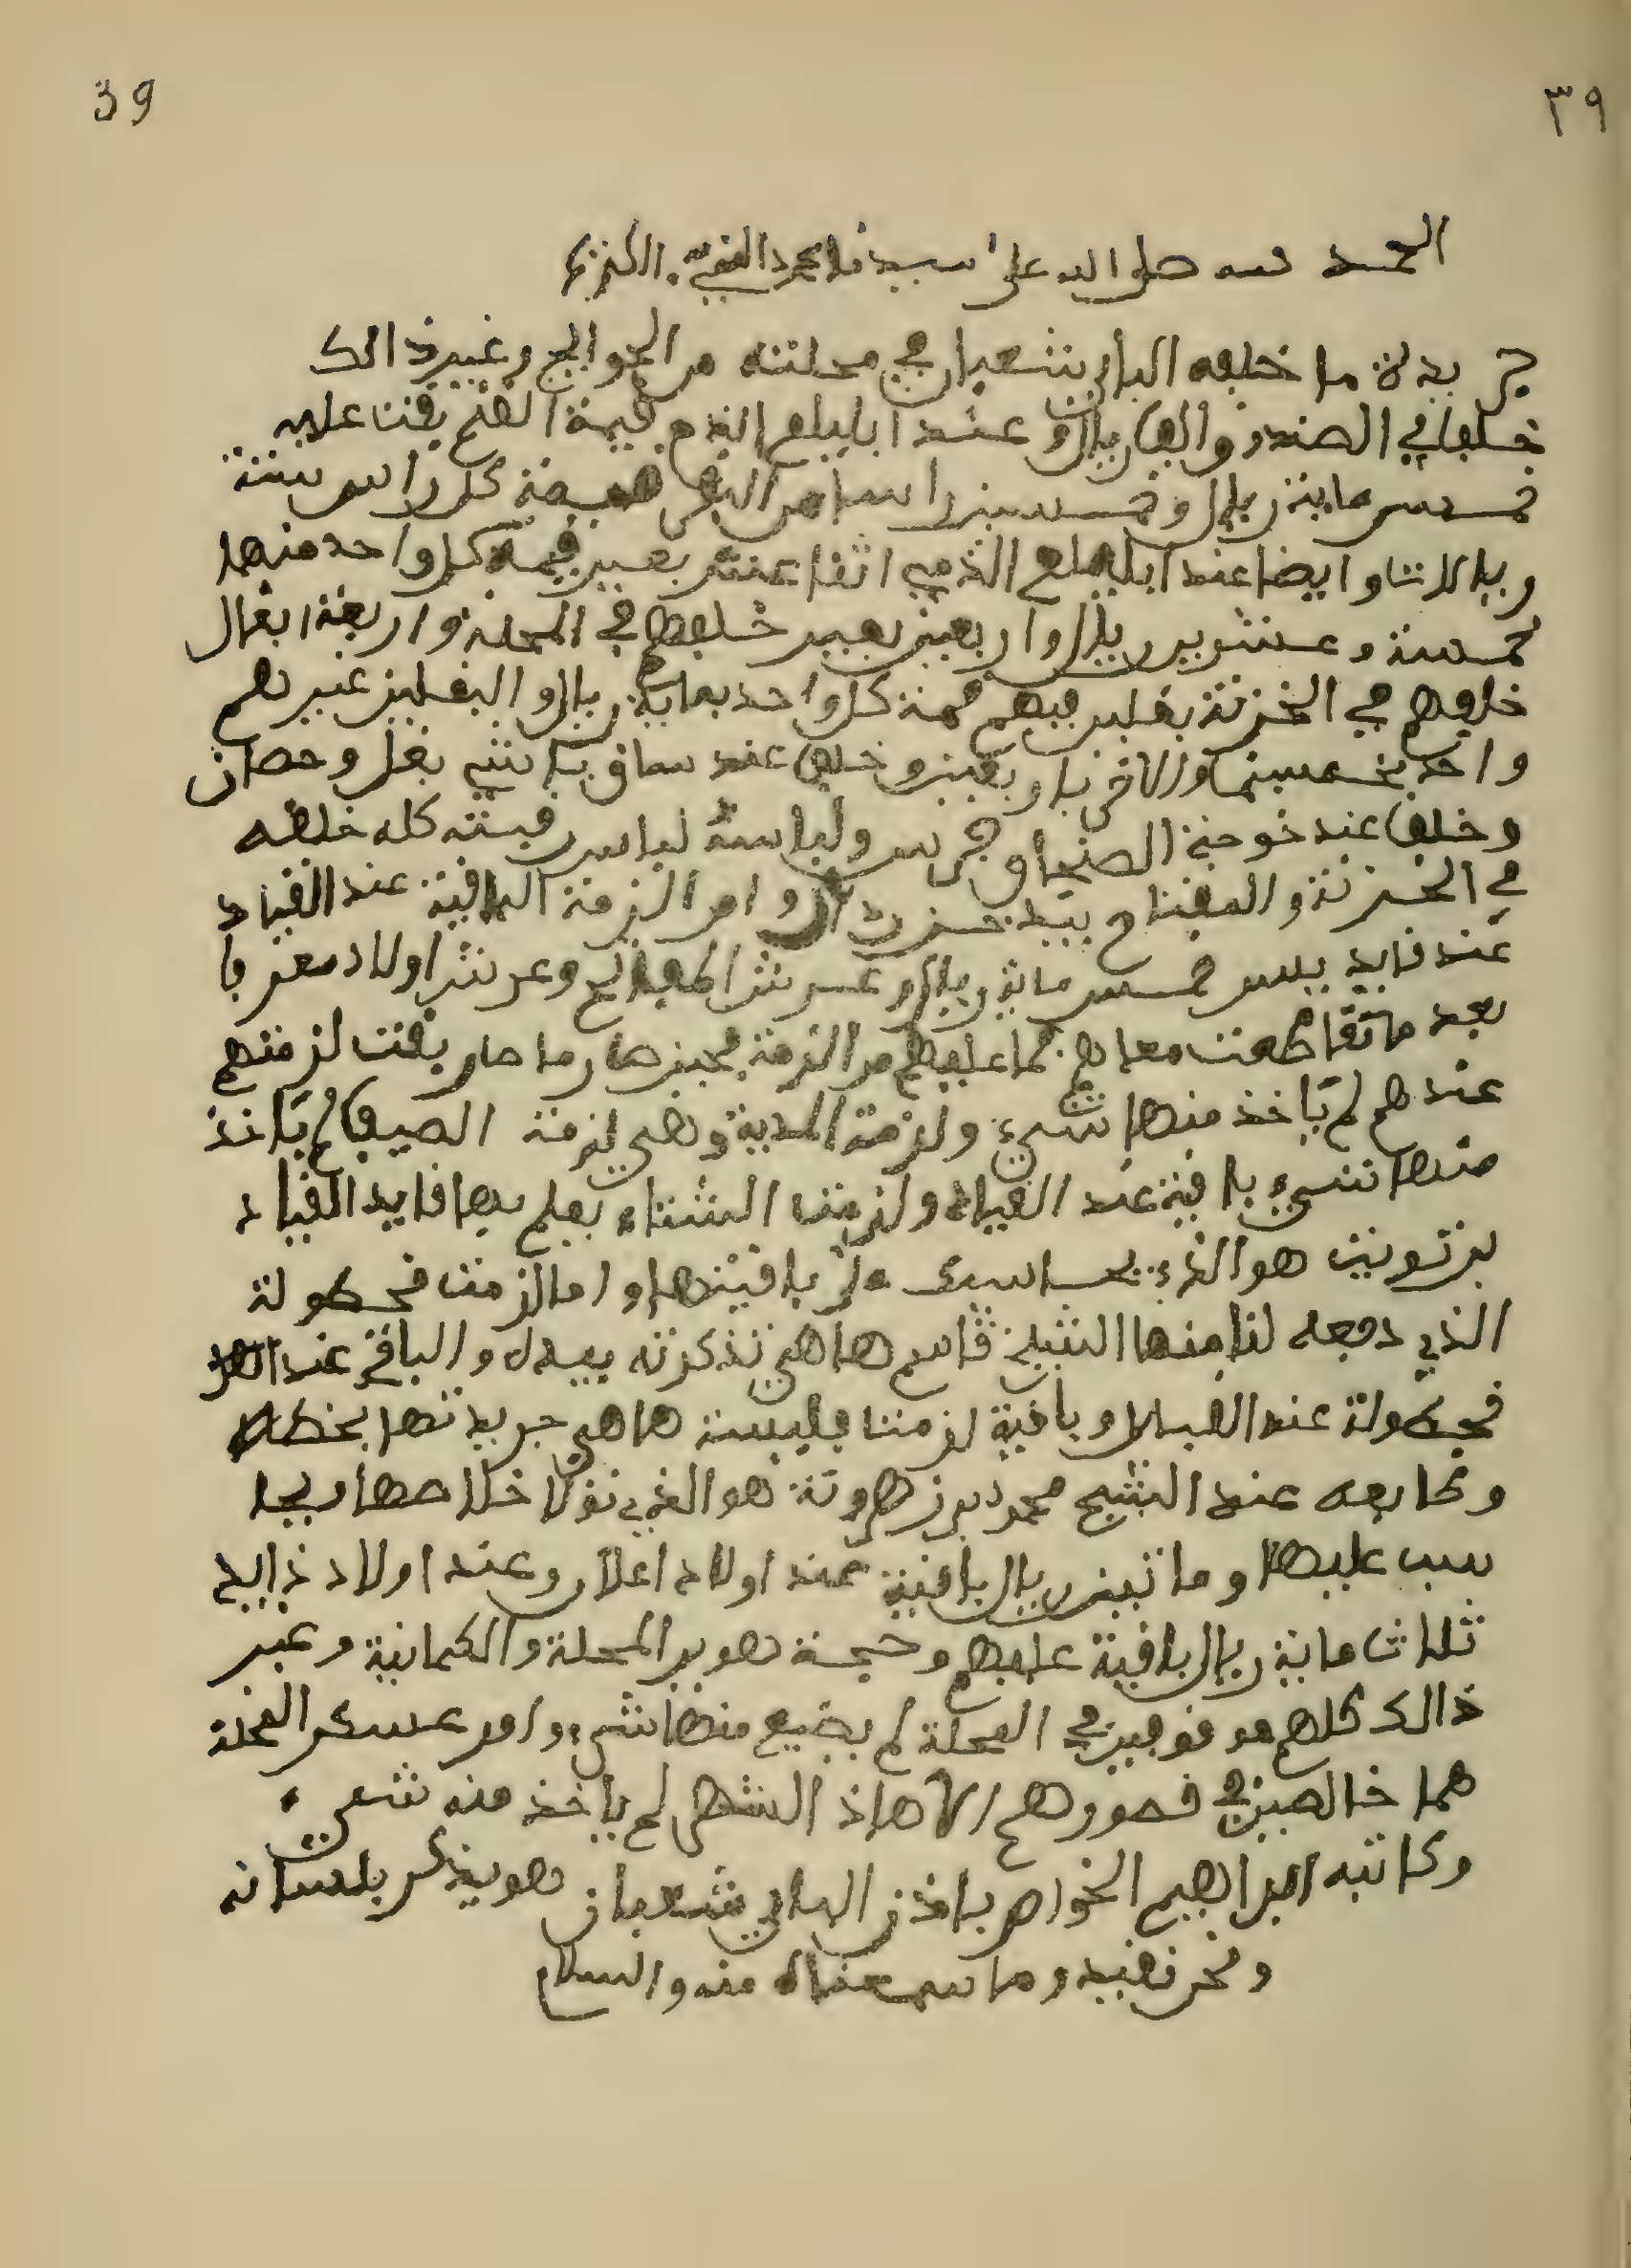 39 ٣٩
الحمد لله صلى الله على سيدنا محمد النبي الكريم
جريدة ما خلفه الباي شعبان في محلته من الحوايج وغير ذالك
خلف في الصندوق الف ريال و عند ابليلع الذمي قيمة القمح بقت عليه
خمس ماية ريال وخمسين راسا من البقر قيمة كل راس ستة
ريالات وايضا عند ابليلع الذمي اثنا عشر بعير قيمة كل واحد منها
خمسة وعشرين ريال واربعين بعير خلفهم في المحلة واربعة ابغال
خلفهم في الخزنة بغلين فيهم قيمة كل واحد بماية ريال والبغلين غيرهم
واحد بخمسين والاخر باربعين و خلف عند ساقي باشي بغل وحصان
وخلف عند خوجة الصنجاق فرس ولباسة لباس رقبته كله خلفه
في الخزنة والمفتاح بيد وامر الزمة الباقية عند القياد
عند قايد يبس خمس ماية ريال و عرش المفاتح وعرش اولاد معرفا
بعد ما تقاطعت معاهم بما عليهم من الزمة بقت لزمتهم
عندهم لم ياخذ منها شيء ولزمة المدية وهي لزمة الصيف لم ياخذ
منها شيء باقية عند القياد ولزمت الشتاء يعلم بها قايد القياد
بن تونيت هو الذي يحاسبك على باقيتها واما لزمت فحطولة
الذي دفعه لنا منها الشيخ قاسم هاهي تذكرته بيدك والباقي عند اهل
فحطولة عند القبايل وباقية لزمتنا بليسة هاهي جريدتها بخطه
وطابعه عند الشيخ محمد بن زهروتة هو الذي تولا خلاصها ويحا
سب عليها ومايتين ريال باقية عند اولاد اعلان وعند اولاد ذايد
ثلاث ماية ريال باقية عليهم وخيمة هوير المحلة والكمانية وغير
ذالك كلهم موفوقين في المحلة لم يضيع منها شيء وامر عسكر المحلة
هما خالصين في قصورهم الا هاذ الشهر لم ياخذ منه شيء
وكاتبه ابراهيم الخواص باذن الباي شعبان هو يذكر بلسانه
ونحن نقيدو ما سمعناه منه والسلام